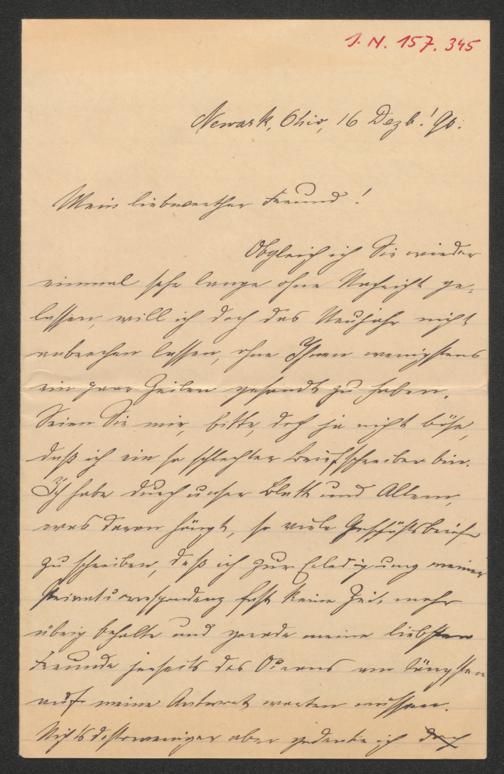 J. N. 157. 345
Newark, Ohio, 16 Dezb.! 90.
Mein liebwerther Freund!
Obgleich ich Sie wieder
einmal sehr lange ohne Nachricht ge-
lassen, will ich doch das Neujahr nicht
anbrechen lassen, ohne Ihnen wenigstens
ein paar Zeilen gesandt zu haben.
Seien Sie mir, bitte, doch ja nicht böse,
daß ich ein so schlechter Briefschreiber bin.
Ich habe durch unser Blatt und Allem,
was daran hängt, so viele Geschäftsbriefe
zu schreiben, daß ich zur Erledigung meiner
Privatcorrespondenz fast keine Zeit mehr
übrig behalte und gerade meine liebsten
Freunde jenseits des Oceans am längsten
auf meine Antwort warten müssen.
Nichts destoweniger aber gedenke ich doch